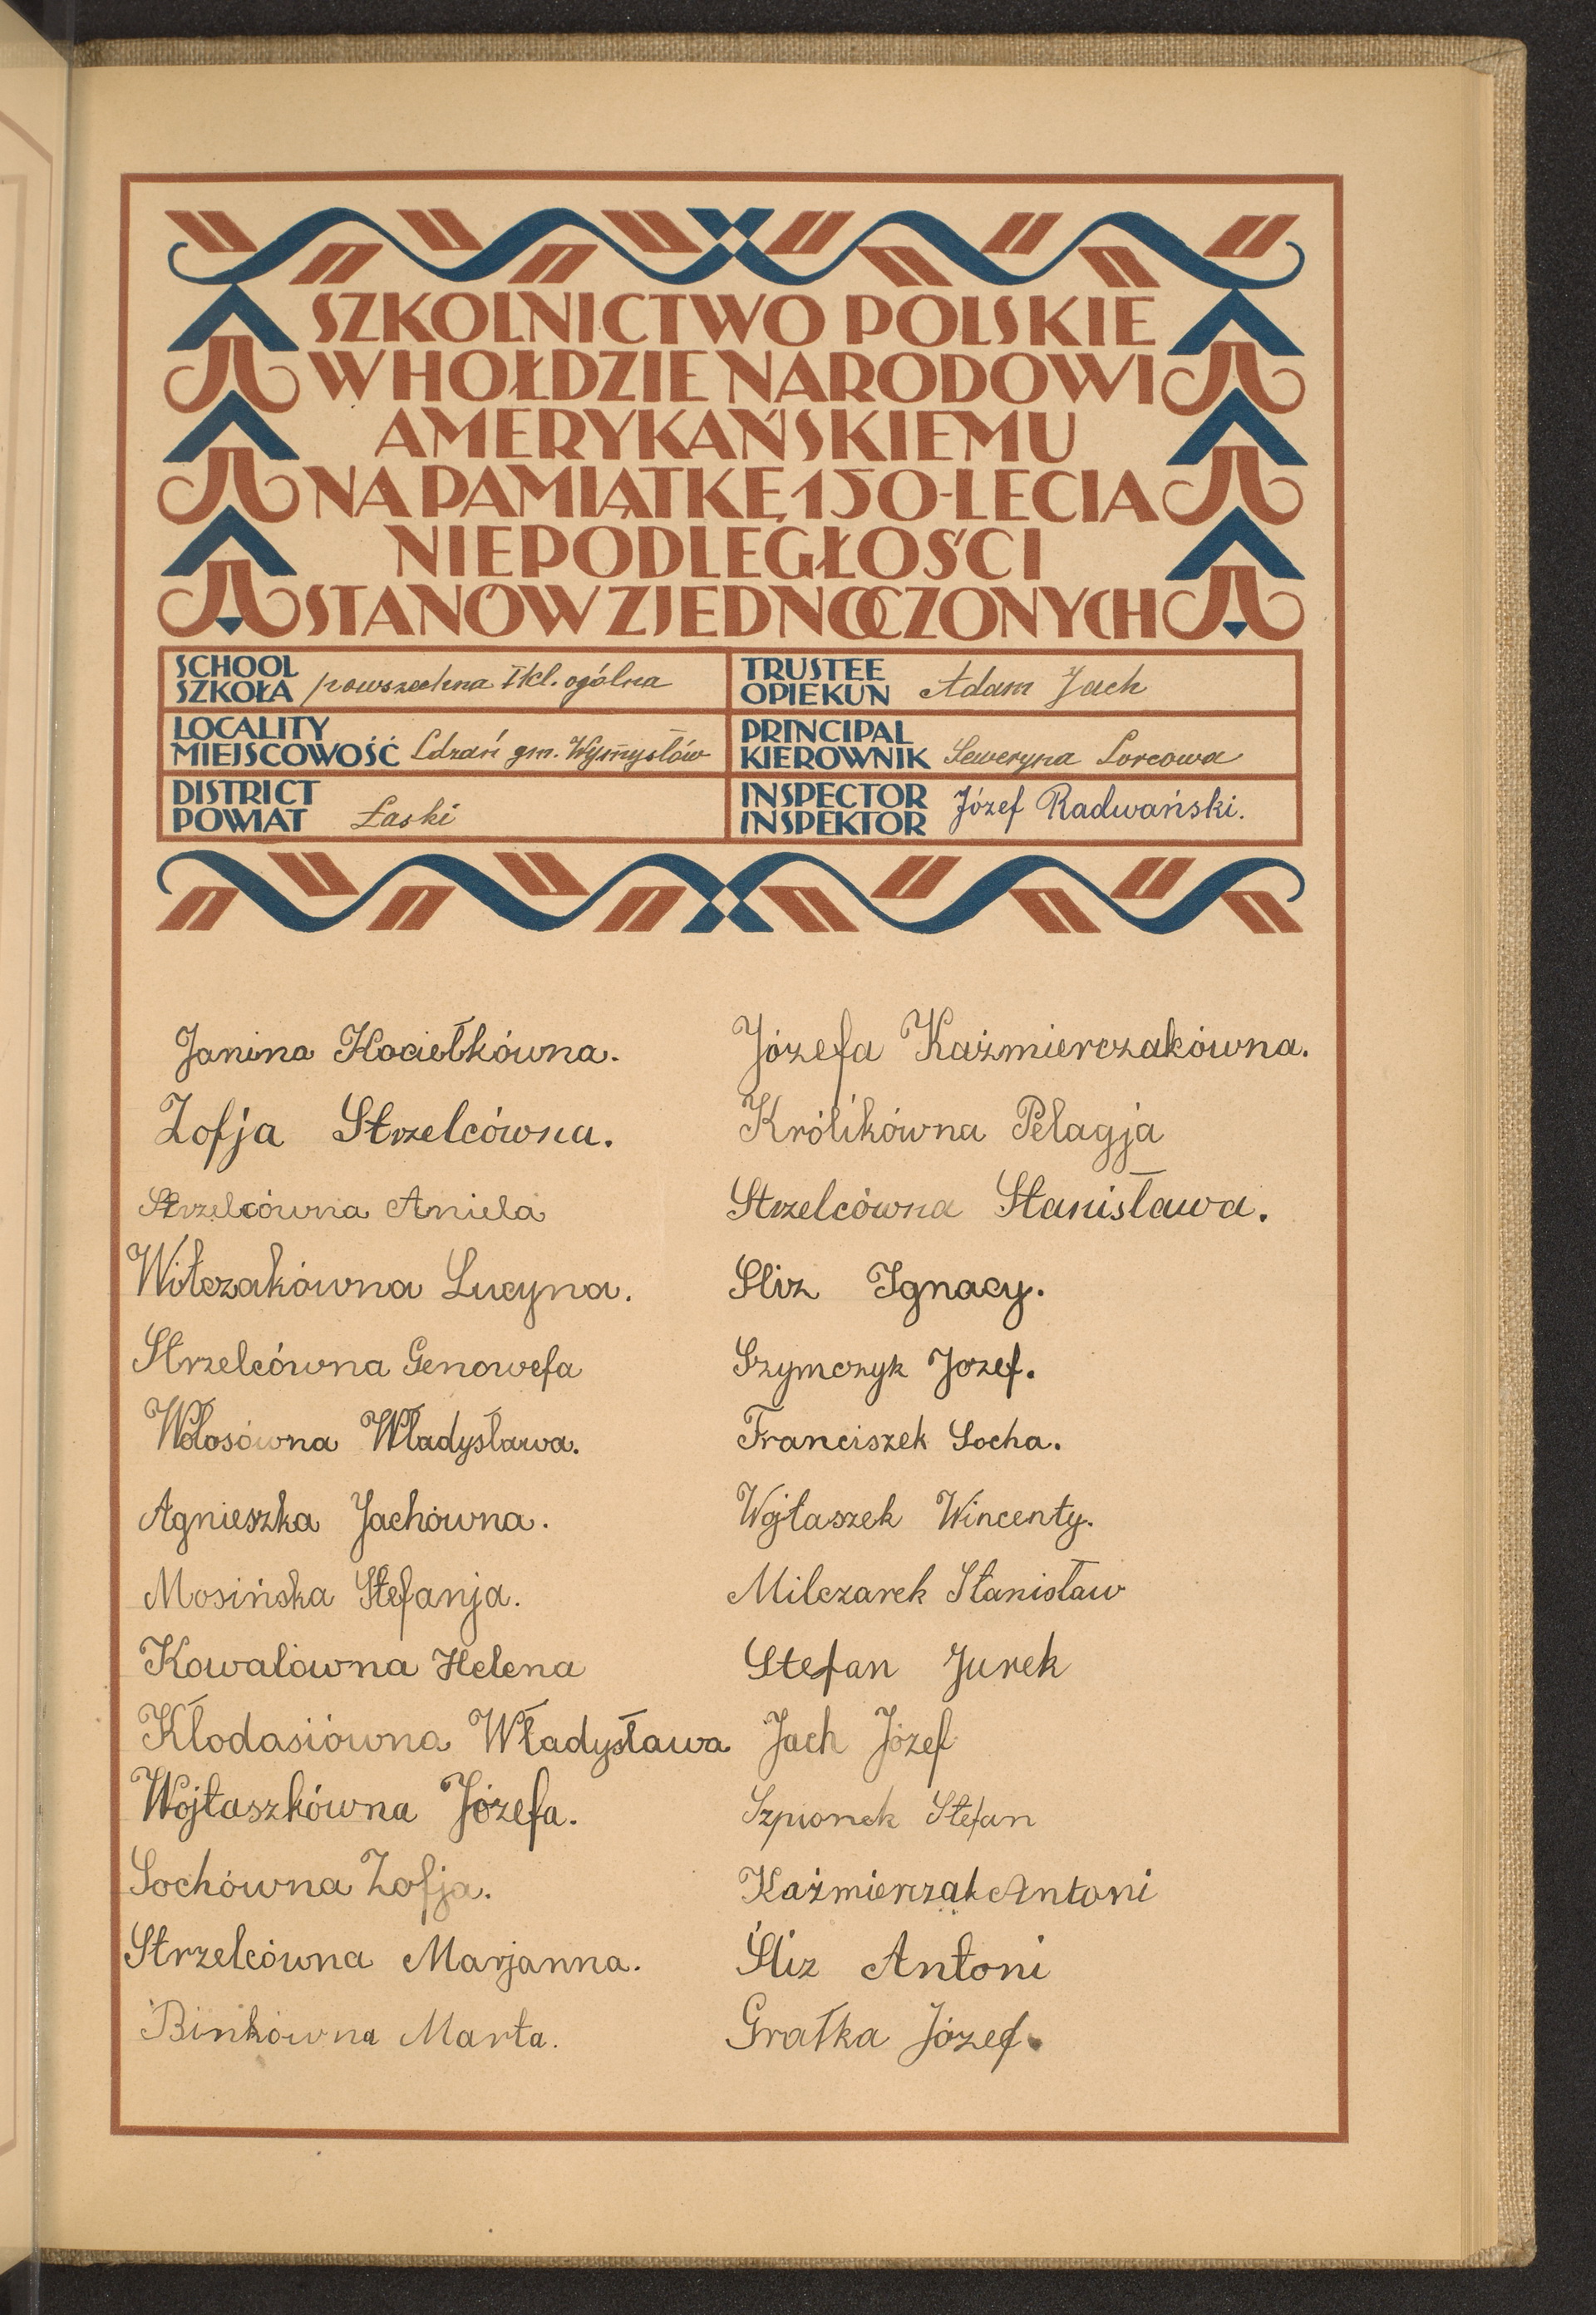 SZKOLNICTWO POLSKIE
W HOŁDZIE NARODOWI
AMERYKAŃSKIEMU
NA PAMIĄTKĘ 150-LECIA
NIEPODLEGŁOŚCI
STANÓW ZJEDNOCZONYCH
SCHOOL
SZKOŁA powszechna I kl. ogólna
TRUSTEE
OPIEKUN Adam Jach
LOCALITY
MIEJSCOWOŚĆ Ldzań gm. Wymysłów
PRINCIPAL
KIEROWNIK Seweryna Lorcowa
DISTRICT
POWIAT Łaski
INSPECTOR
INSPEKTOR Józef Radwański.
Janina Kociełkówna.
Zofja Strzelcówna.
Strzelcówna Aniela
Witczakówna Lucyna.
Strzelcówna Genowefa
Wołosówna Władysława.
Agnieszka Jachówna.
Mosińska Stefanja.
Kowalówna Helena
Kłodasiówna Władysława
Wojtaszkówna Józefa.
Sochówna Zofja.
Strzelcówna Marjanna.
Binkówna Marta.
Józefa Kaźmierczakówna.
Królikówna Pelagja
Strzelcówna Stanisława.
Sliz Ignacy.
Szymczyk Jozef.
Franciszek Socha.
Wojtaszek Wincenty.
Milczarek Stanisław
Stefan Jurek
Jach Józef
Szpionek Stefan
Kaźmierzak Antoni
Śliz Antoni
Grałka Józef.